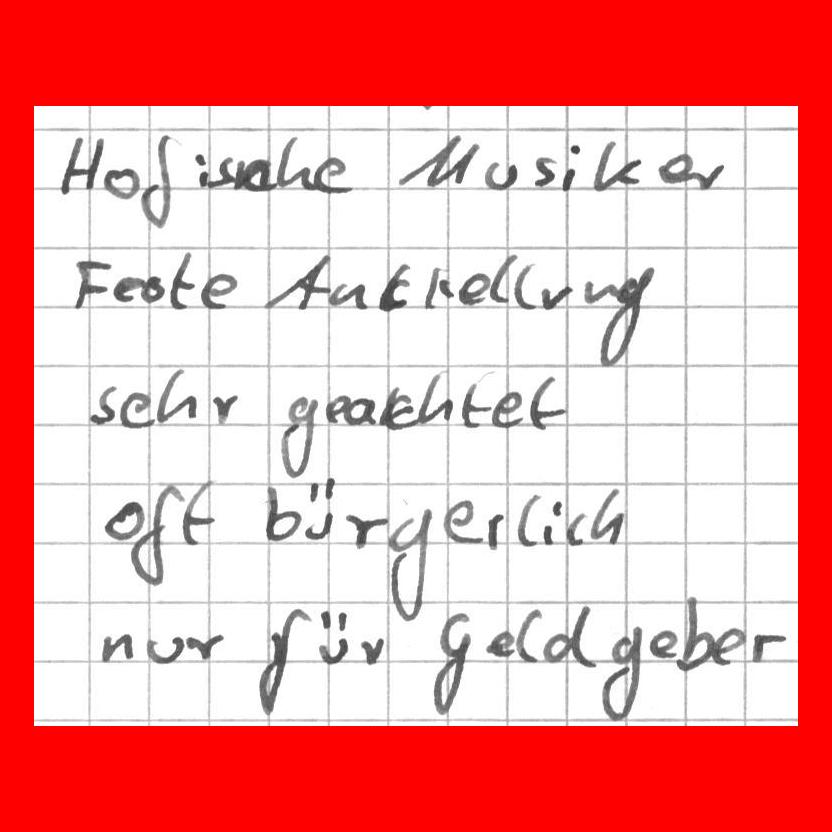 Hofische Musiker
Feste Antkellung
sehr geachtet
oft bürgerlich
nur für Geldgeber